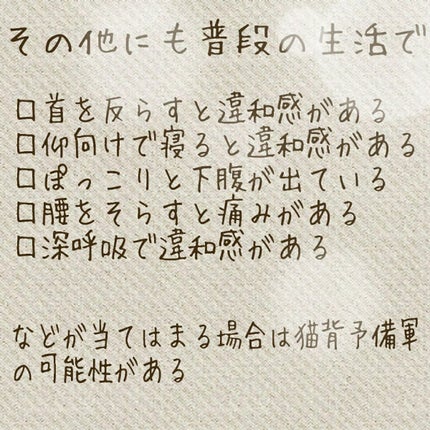 その他にも普段の生活で
□首を反らすと違和感がある
□仰向けで寝ると違和感がある
□ぽっこりと下腹が出ている
□腰をそらすと痛みがある
□深呼吸で違和感がある
などが当てはまる場合は猫背予備軍
の可能性がある